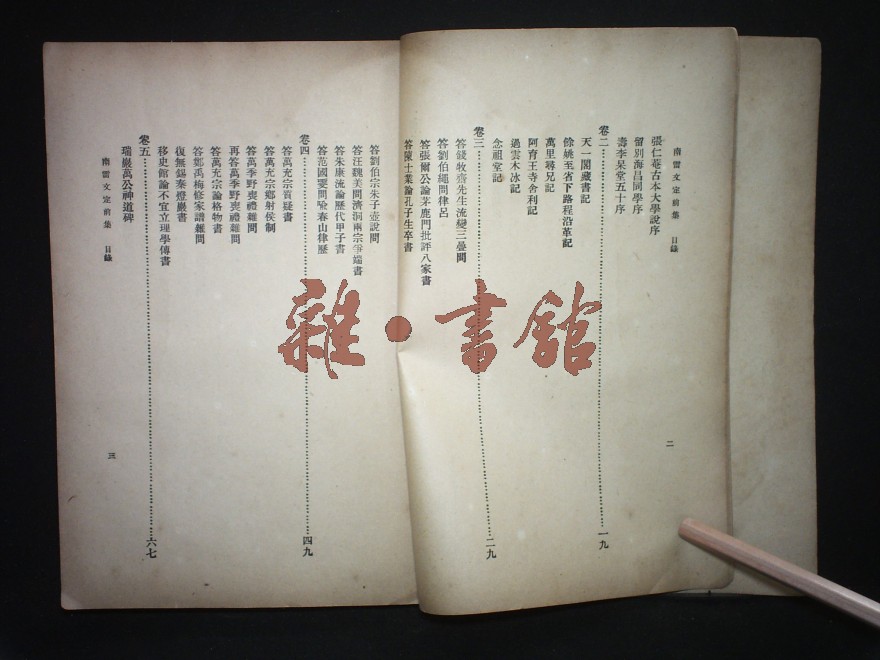 南雷文定前集 目錄
張仁菴古本大學說序
留別海昌同學序
壽李杲堂五十序
卷二……一九
天一閣藏書記
餘姚至省下路程沿革記
萬里尋兄記
阿育王寺舍利記
過雲木冰記
念祖堂記
卷三……二九
答錢牧齋先生流變三疊問
答劉伯繩問律呂
答張爾公論茅鹿門批評八家書
答陳士業論孔子生卒書
二
答劉伯宗朱子壺說問
答汪魏美問濟洞兩宗爭端書
答朱康流論歷代甲子書
答范國雯問喻春山律歷
卷四……四九
答萬充宗質疑書
答萬充宗鄉射侯制
答萬季野喪禮雜問
再答萬季野喪禮雜問
答萬充宗論格物書
答鄭禹梅修家譜雜問
復無錫秦燈巖書
移史館論不宜立理學傳書
卷五……六七
瑞巖萬公神道碑
南雷文定前集 目錄
三
雜·書館